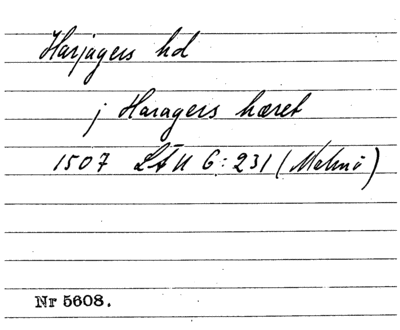 Harjagers hd
j Haragers hæret
1507 LÅU 6:231 (Malmö)
Nr 5608.